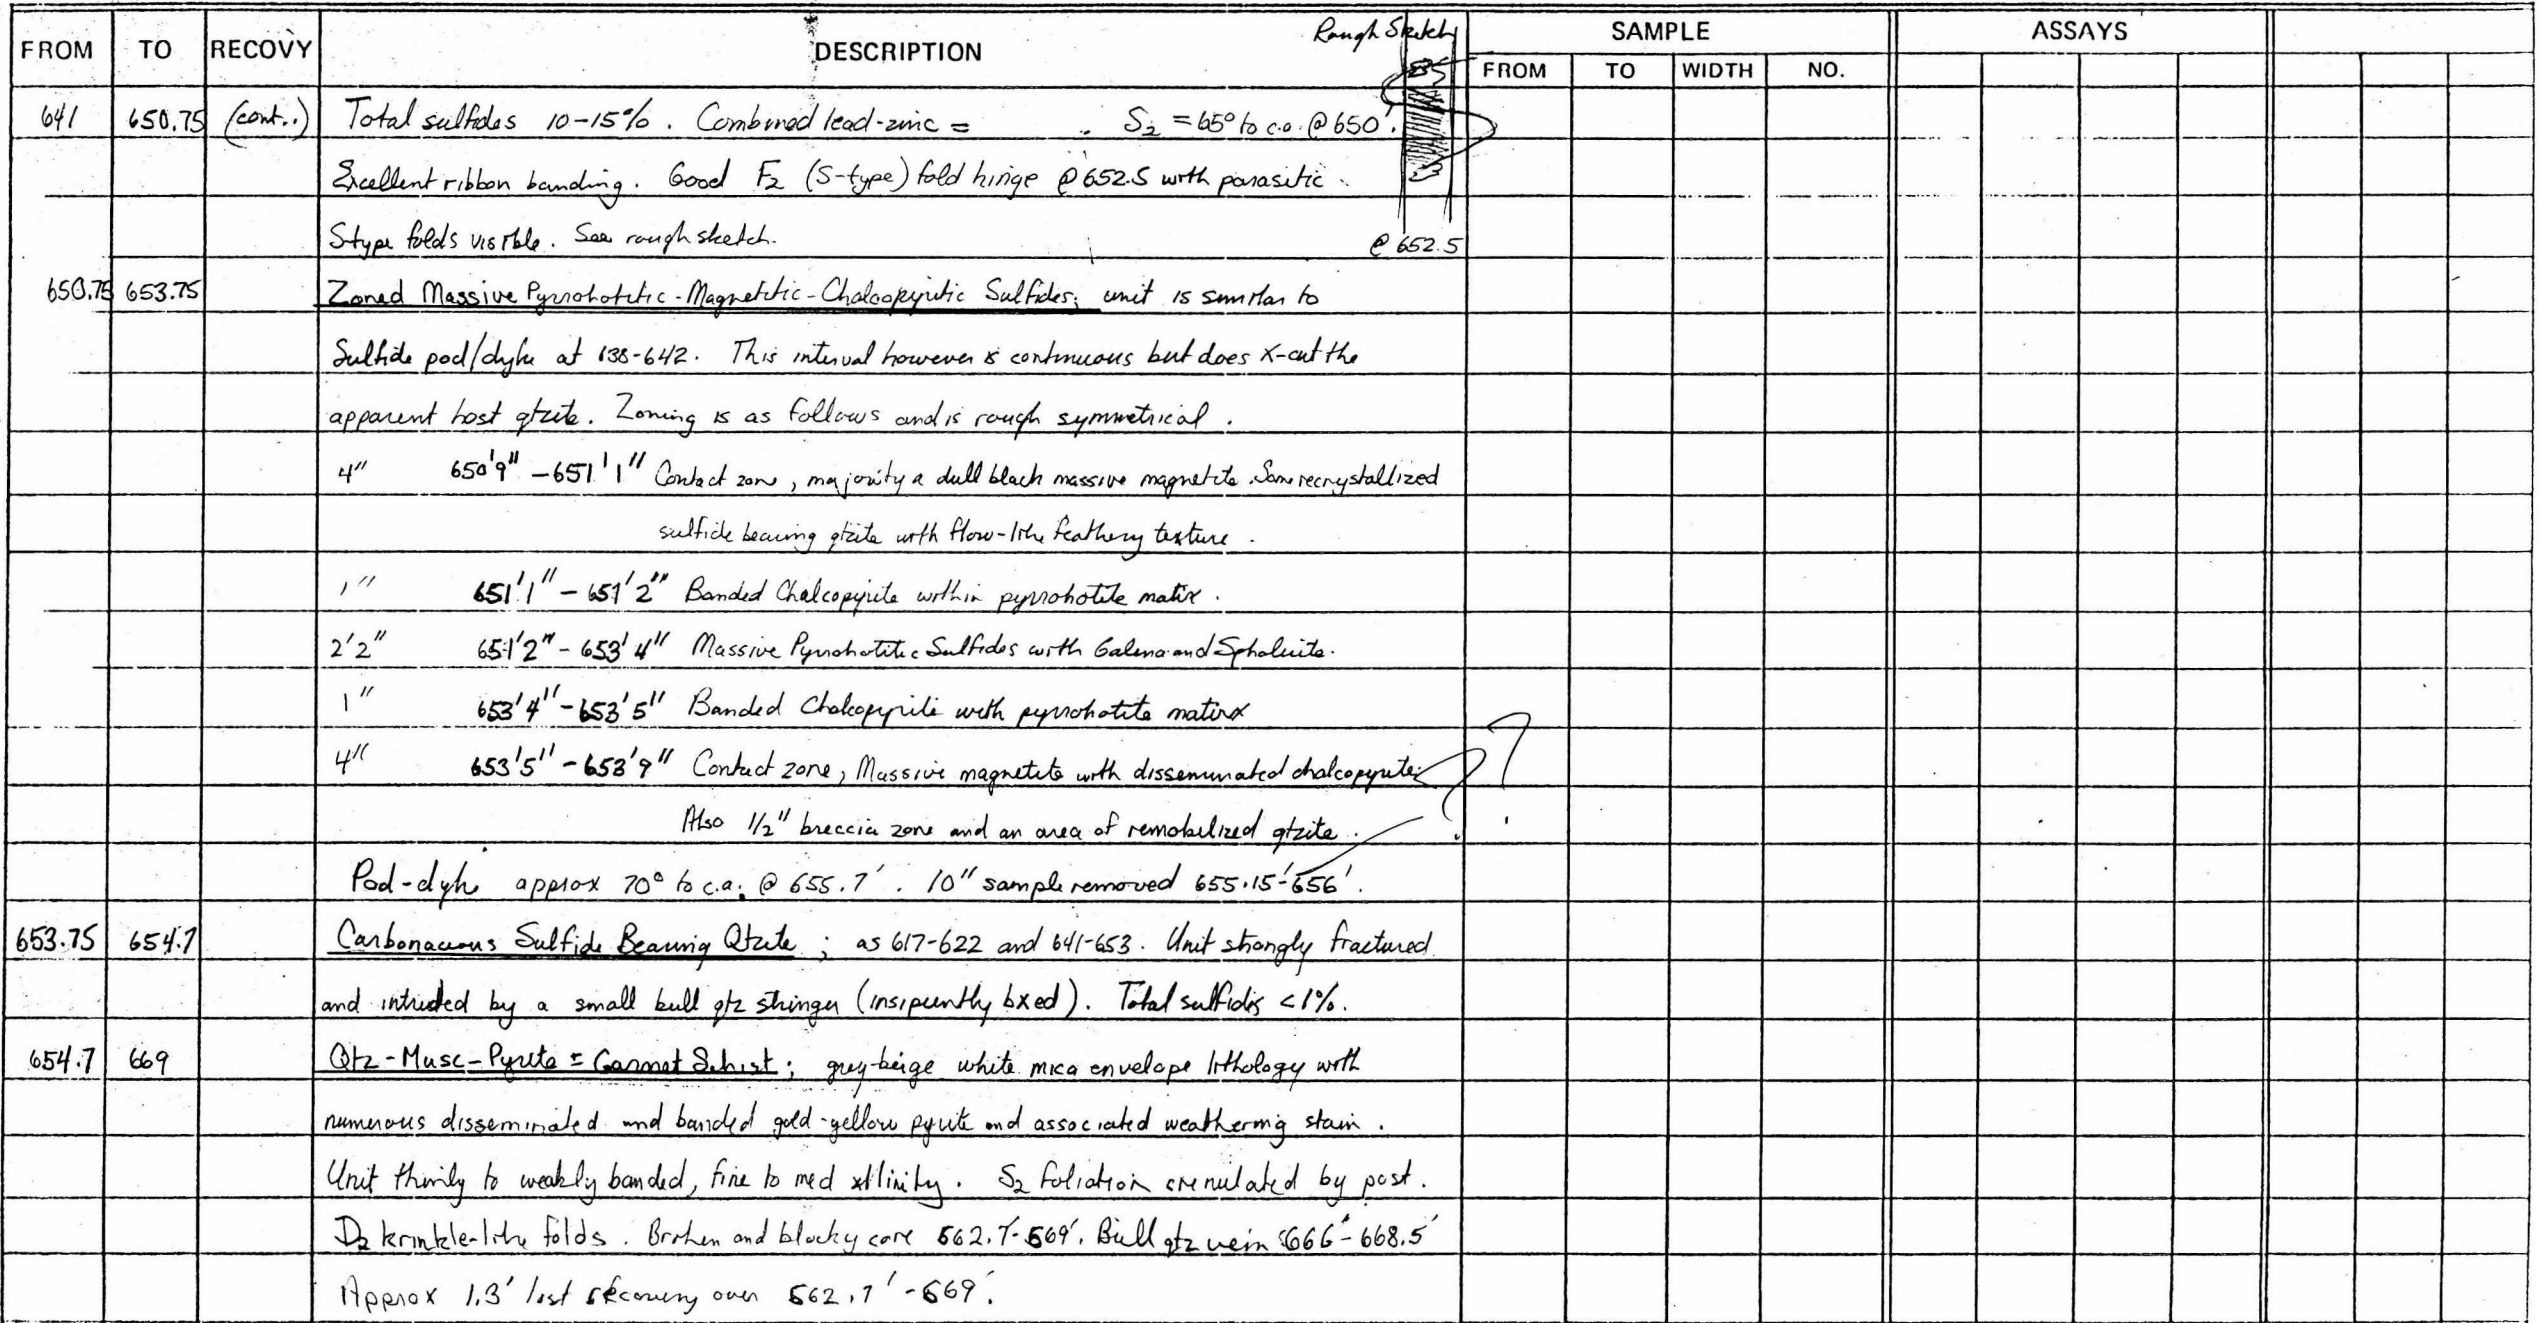 FROM TO RECOVY DESCRIPTION Rough Sketch SAMPLE ASSAYS
FROM TO WIDTH NO.
641 650.75 (cont..) Total sulfides 10-15%. Combined lead-zinc = . S2 = 65° to c.a. @ 650'.
Excellent ribbon banding. Good F2 (S-type) fold hinge @ 652.5 with parasitic
S-type folds visible. See rough sketch. @ 652.5
650.75 653.75 Zoned Massive Pyrrohotetic-Magnetitic-Chalcopyritic Sulfides; unit is similar to
Sulfide pod/dyke at 138-642. This interval however is continuous but does x-cut the
apparent host qtzite. Zoning is as follows and is rough symmetrical.
4" 650'9" - 651'1" Contact zone, majority a dull black massive magnetite. Some recrystallized
sulfide bearing qtzite with flow-like feathery texture.
1" 651'1" - 651'2" Banded Chalcopyrite within pyrrohotite matix.
2'2" 651'2" - 653'4" Massive Pyrrohotitic Sulfides with Galena and Sphalerite.
1" 653'4" - 653'5" Banded Chalcopyrite with pyrrohotite matirx
4" 653'5" - 653'9" Contact zone, Massive magnetite with disseminated chalcopyrite. ?
Also 1/2" breccia zone and an area of remobilized qtzite.
Pod-dyke approx 70° to c.a. @ 655.7'. 10" sample removed 655.15'-656'.
653.75 654.7 Carbonaceous Sulfide Bearing Qtzite; as 617-622 and 641-653. Unit strongly fractured
and intruded by a small bull qtz stringer (insipiently bxed). Total sulfides <1%.
654.7 669 Qtz-Musc-Pyrite ± Garnet Schist; grey-beige white mica envelope lithology with
numerous disseminated and banded gold-yellow pyrite and associated weathering stain.
Unit thinly to weakly banded, fine to med xtlinity. S2 foliation crenulated by post.
D2 krinkle-like folds. Broken and blocky core 662.7'-669'. Bull qtz vein 666'-668.5'
Approx 1.3' lost recovery over 662.7'-669'.